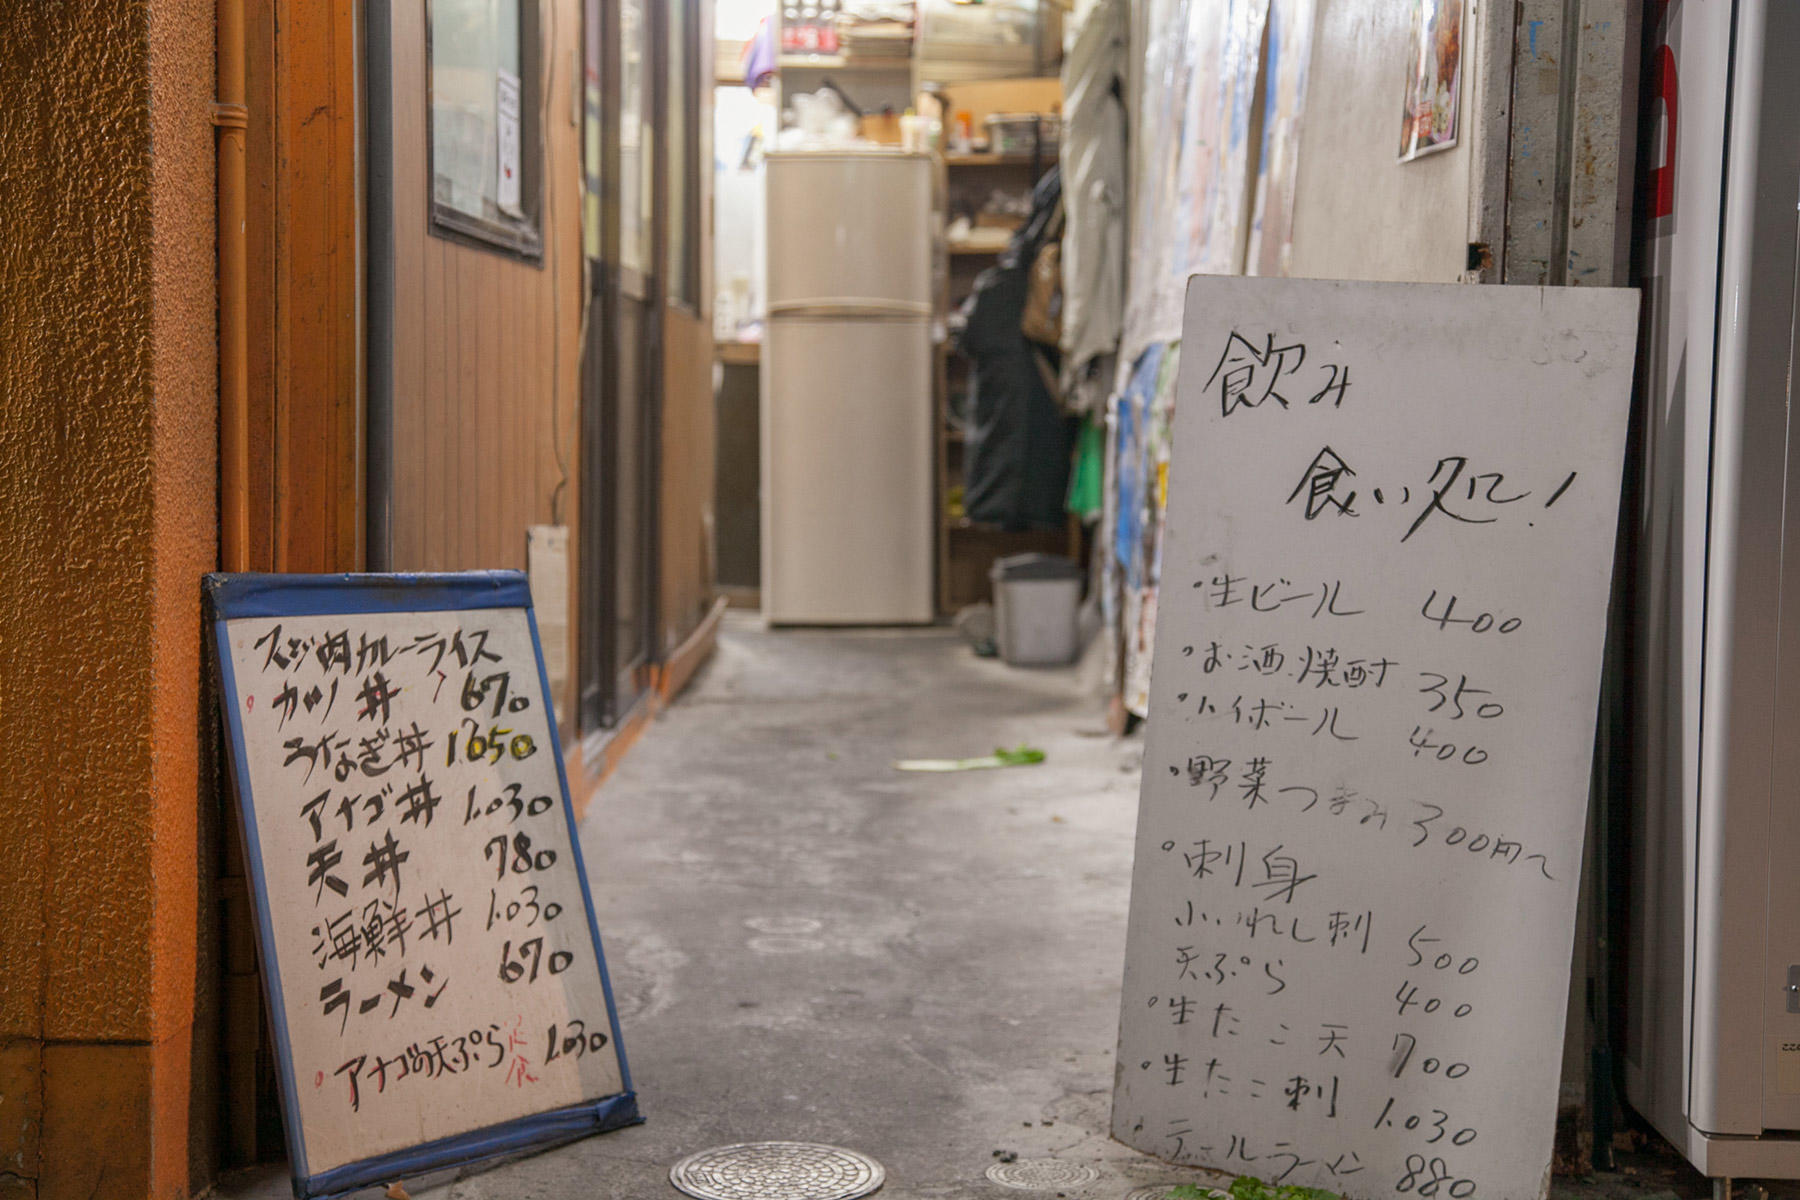 スジ肉カレーライス
カツ丼 670
うなぎ丼 1.650
アナゴ丼 1.030
天丼 780
海鮮丼 1.030
ラーメン 670
アナゴの天ぷら定食 1.030
飲み
食い処!
生ビール 400
お酒.焼酎 350
ハイボール 400
野菜つまみ 300円〜
刺身
天ぷら 400
生たこ天 700
生たこ刺 1.030
テールラーメン 880